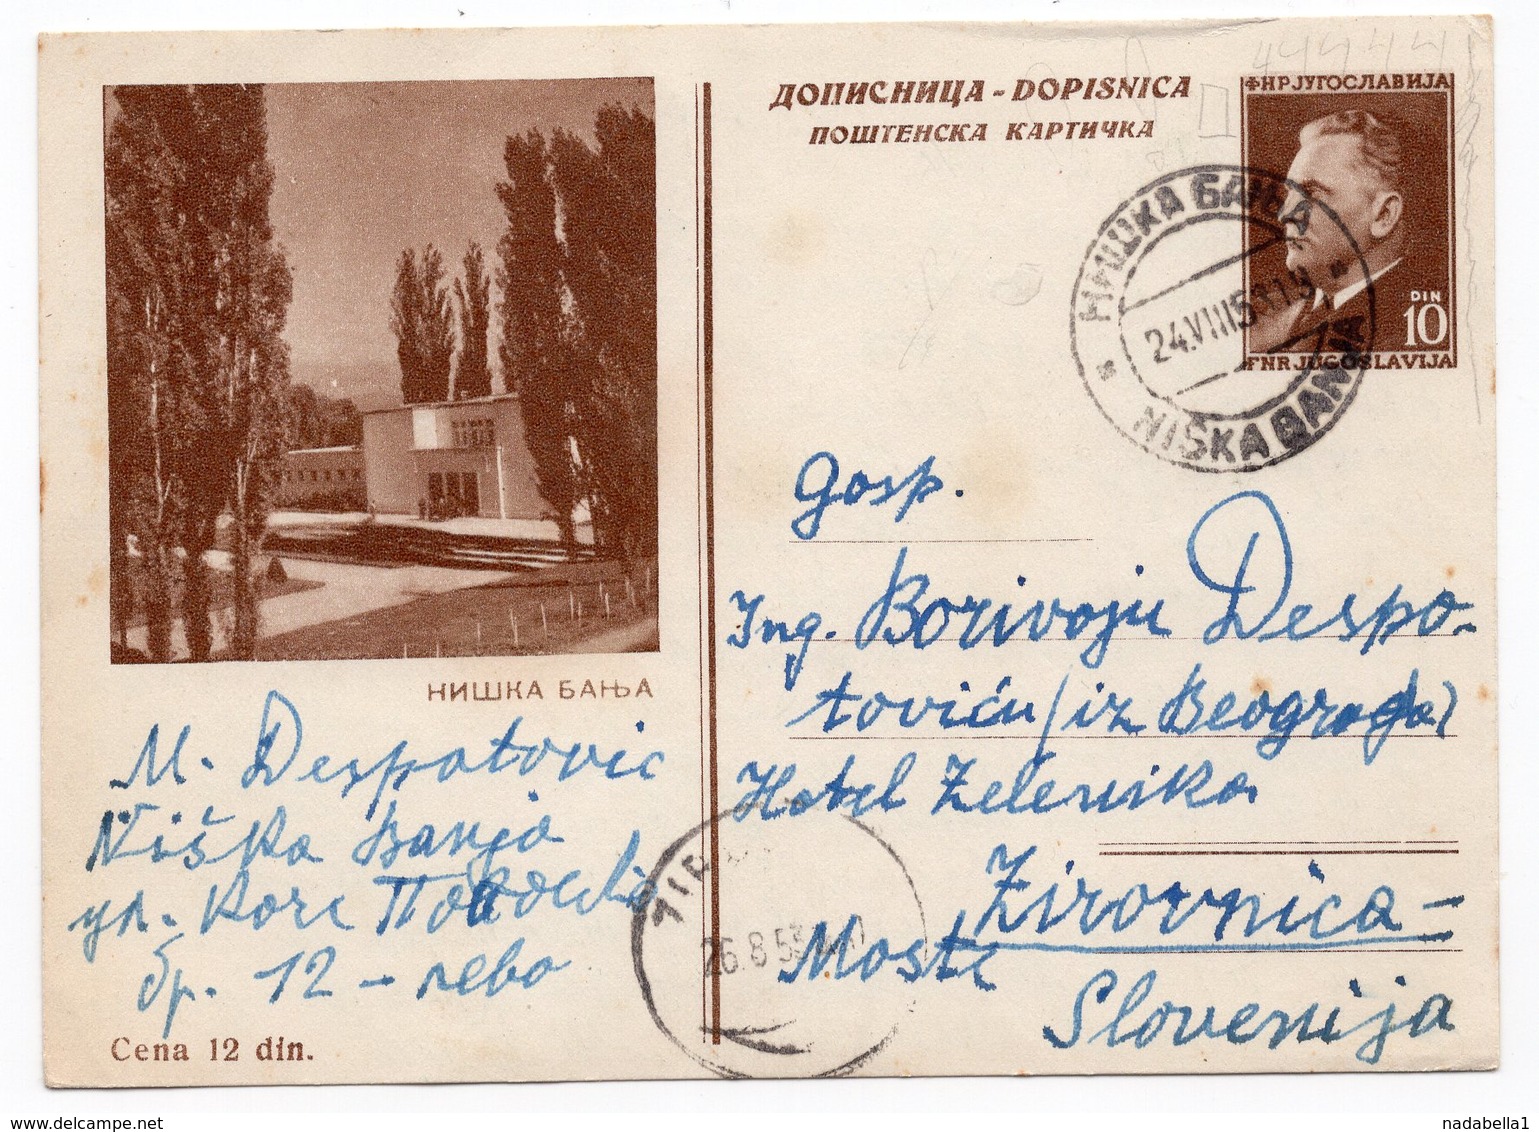 ДОПИСНИЦА - DOPISNICA
ПОШТЕНСКА КАРТИЧКА
ФНР ЈУГОСЛАВИЈА
DIN
10
FNR JUGOSLAVIJA
НИШКА БАЊА
24.VIII
NIŠKA BANJA
Gosp.
Ing. Borivoju Despo-
toviću (iz Beograda)
Hotel Zelenika
Žirovnica -
Moste
Slovenija
НИШКА БАЊА
M. Despotovic
Niška Banja
ул.
бр. 12 - лево
26.8.53
Cena 12 din.
www.delcampe.net
nadabella1